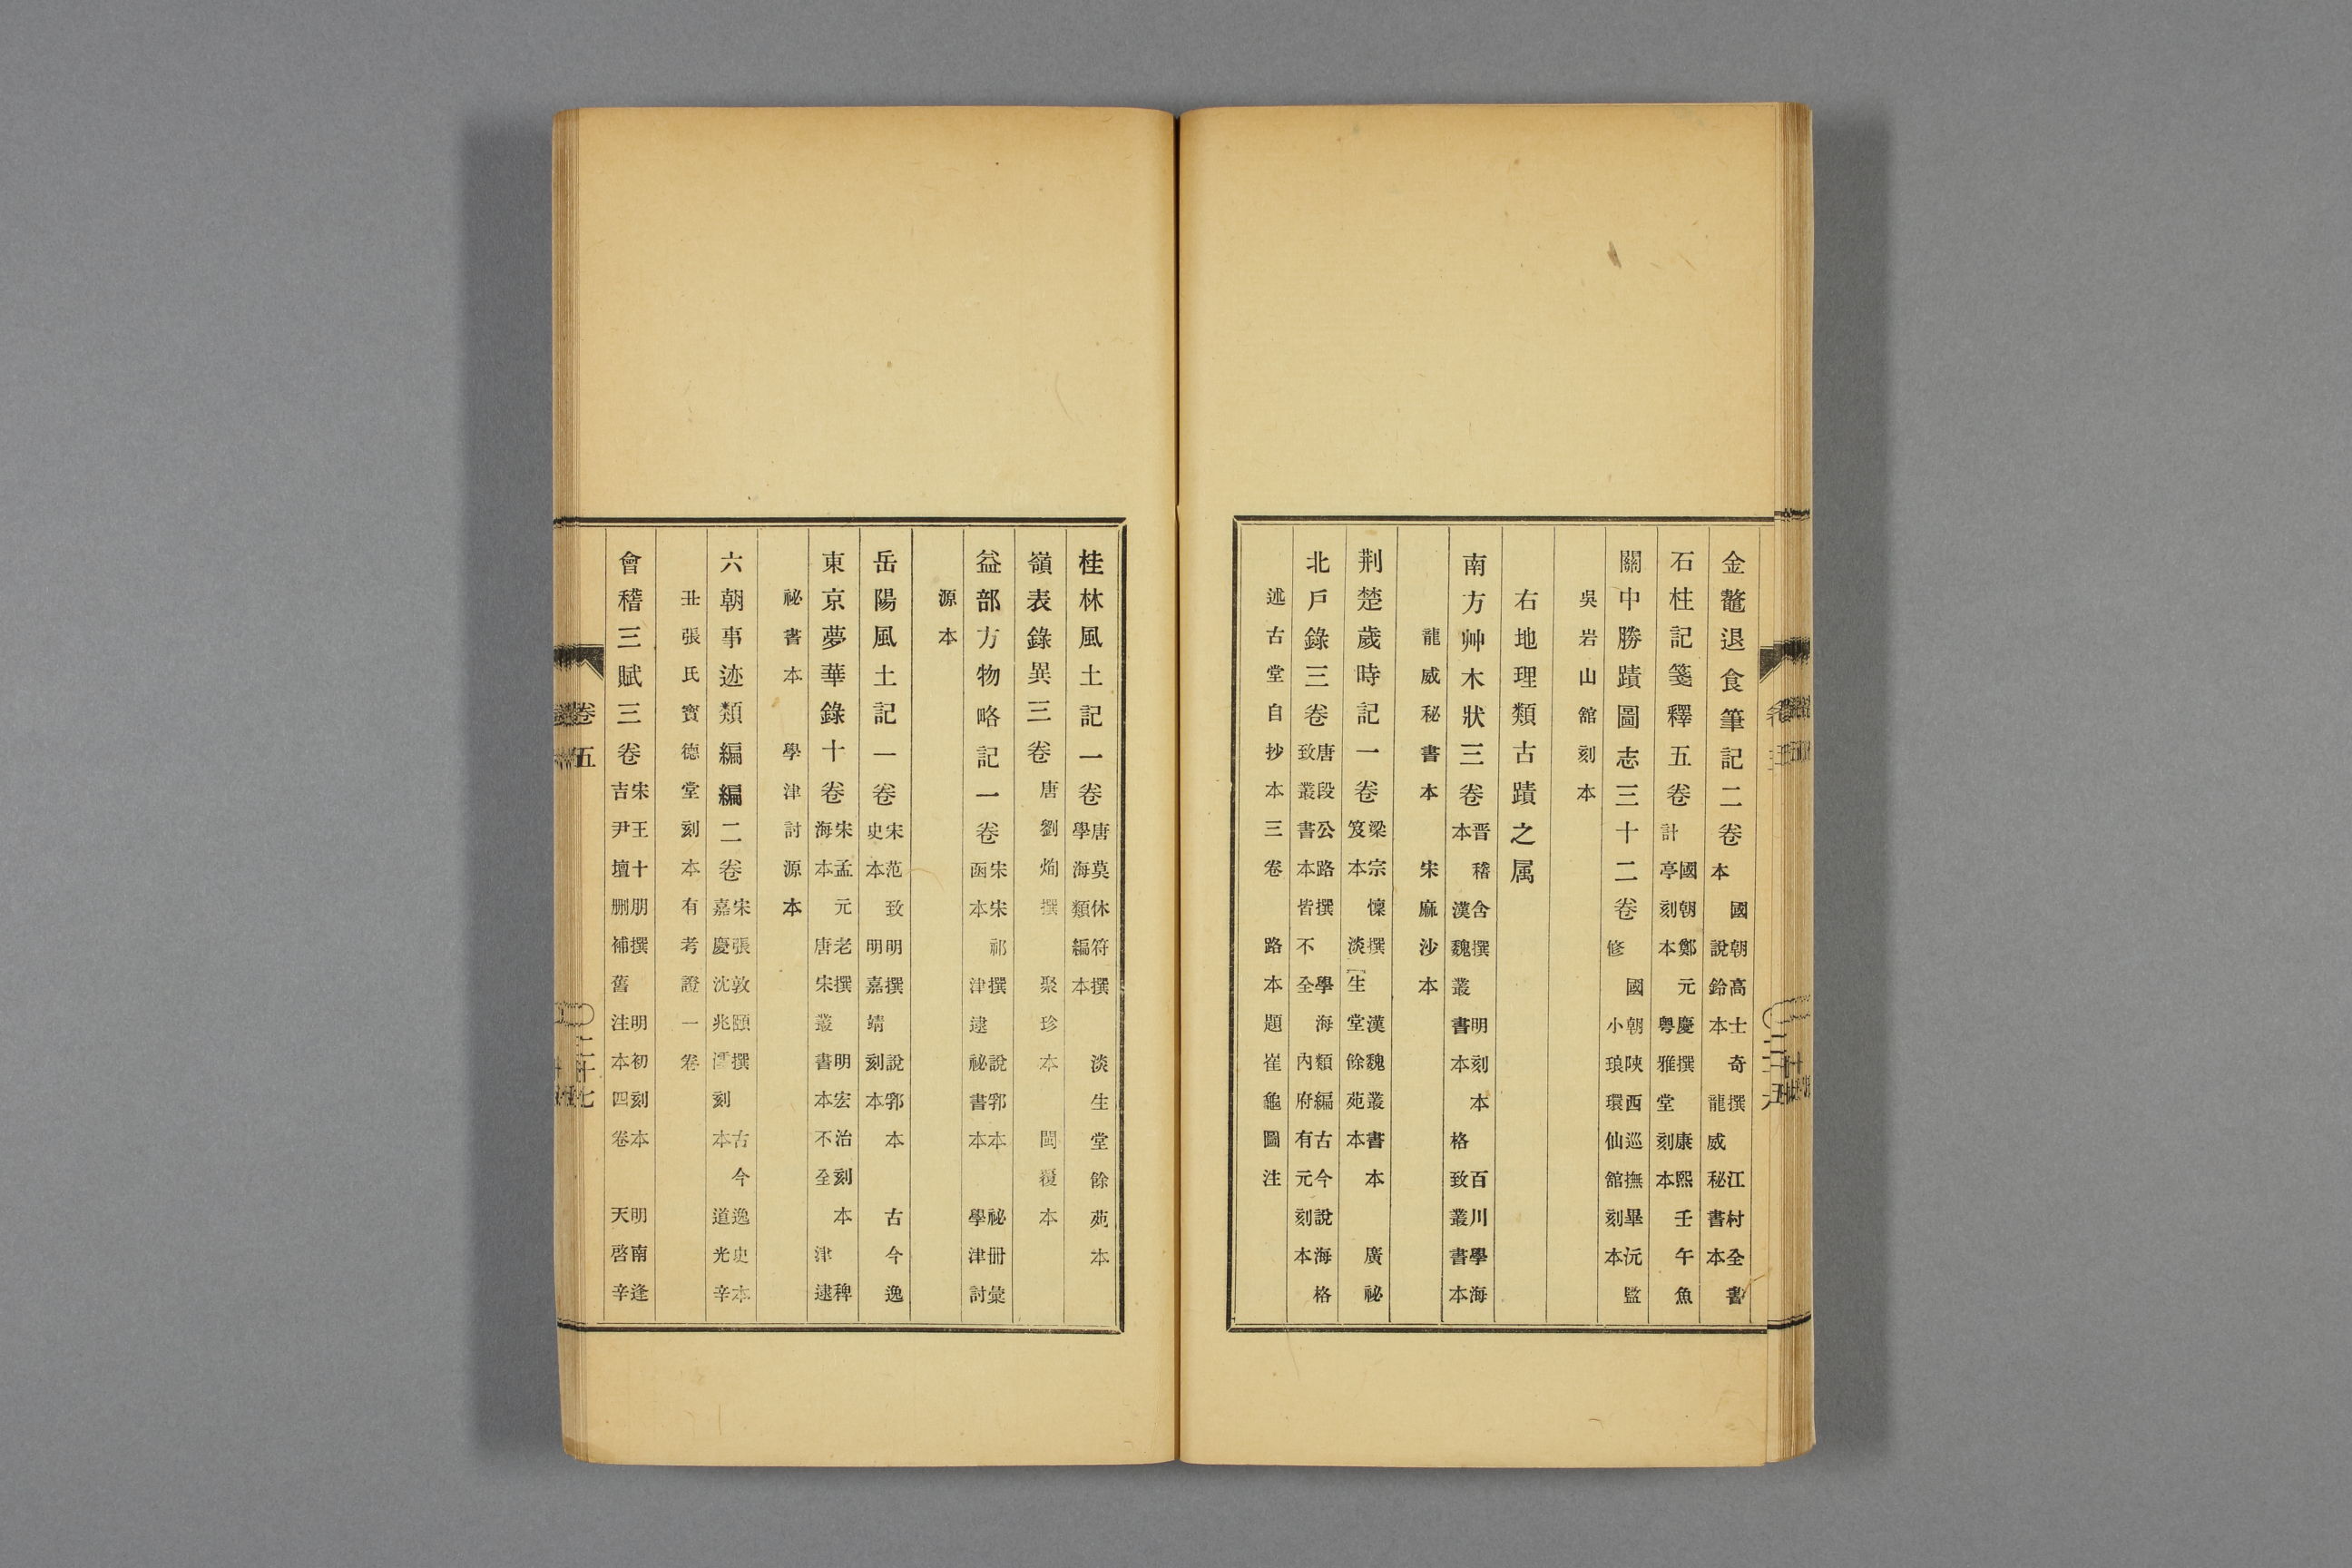 金鼇退食筆記二卷 國朝高士奇撰 江村全書
本 說鈴本 龍威秘書本
石桂記箋釋五卷 國朝鄭元慶撰 康熙壬午魚
計亭刻本 粤雅堂刻本
關中勝蹟圖志三十二卷 國朝陝西巡撫畢沅監
修 小琅環仙舘刻本
吳岩山舘刻本
右地理類古蹟之属
南方艸木狀三卷 晋稽含撰 明刻本 百川學海
本 漢魏叢書本 格致叢書本
龍威秘書本 宋麻沙本
荆楚歲時記一卷 梁宗懍撰 漢魏叢書本 廣祕
笈本 淡生堂餘苑本
北戶錄三卷 唐段公路撰 學海類編古今說海格
致叢書本皆不全 內府有元刻本
述古堂自抄本三卷 路本題崔龜圖注
桂林風土記一卷 唐莫休符撰 淡生堂餘苑本
學海類編本
嶺表錄異三卷 唐劉恂撰 聚珍本 閩覆本
益部方物略記一卷 宋宋祁撰 說郛本 祕冊彙
函本 津逮祕書本 學津討
源本
岳陽風土記一卷 宋范致明撰 說郛本 古今逸
史本 明嘉靖刻本
東京夢華錄十卷 宋孟元老撰 明宏治刻本 稗
海本 唐宋叢書本不全 津逮
祕書本 學津討源本
六朝事迹類編編二卷 宋張敦頤撰 古今逸史本
嘉慶沈兆澐刻本 道光辛
丑張氏寶德堂刻本有考證一卷
會稽三賦三卷 宋王十朋撰 明初刻本 明南逢
吉尹壇刪補舊注本四卷 天啓辛
卷五
二十七